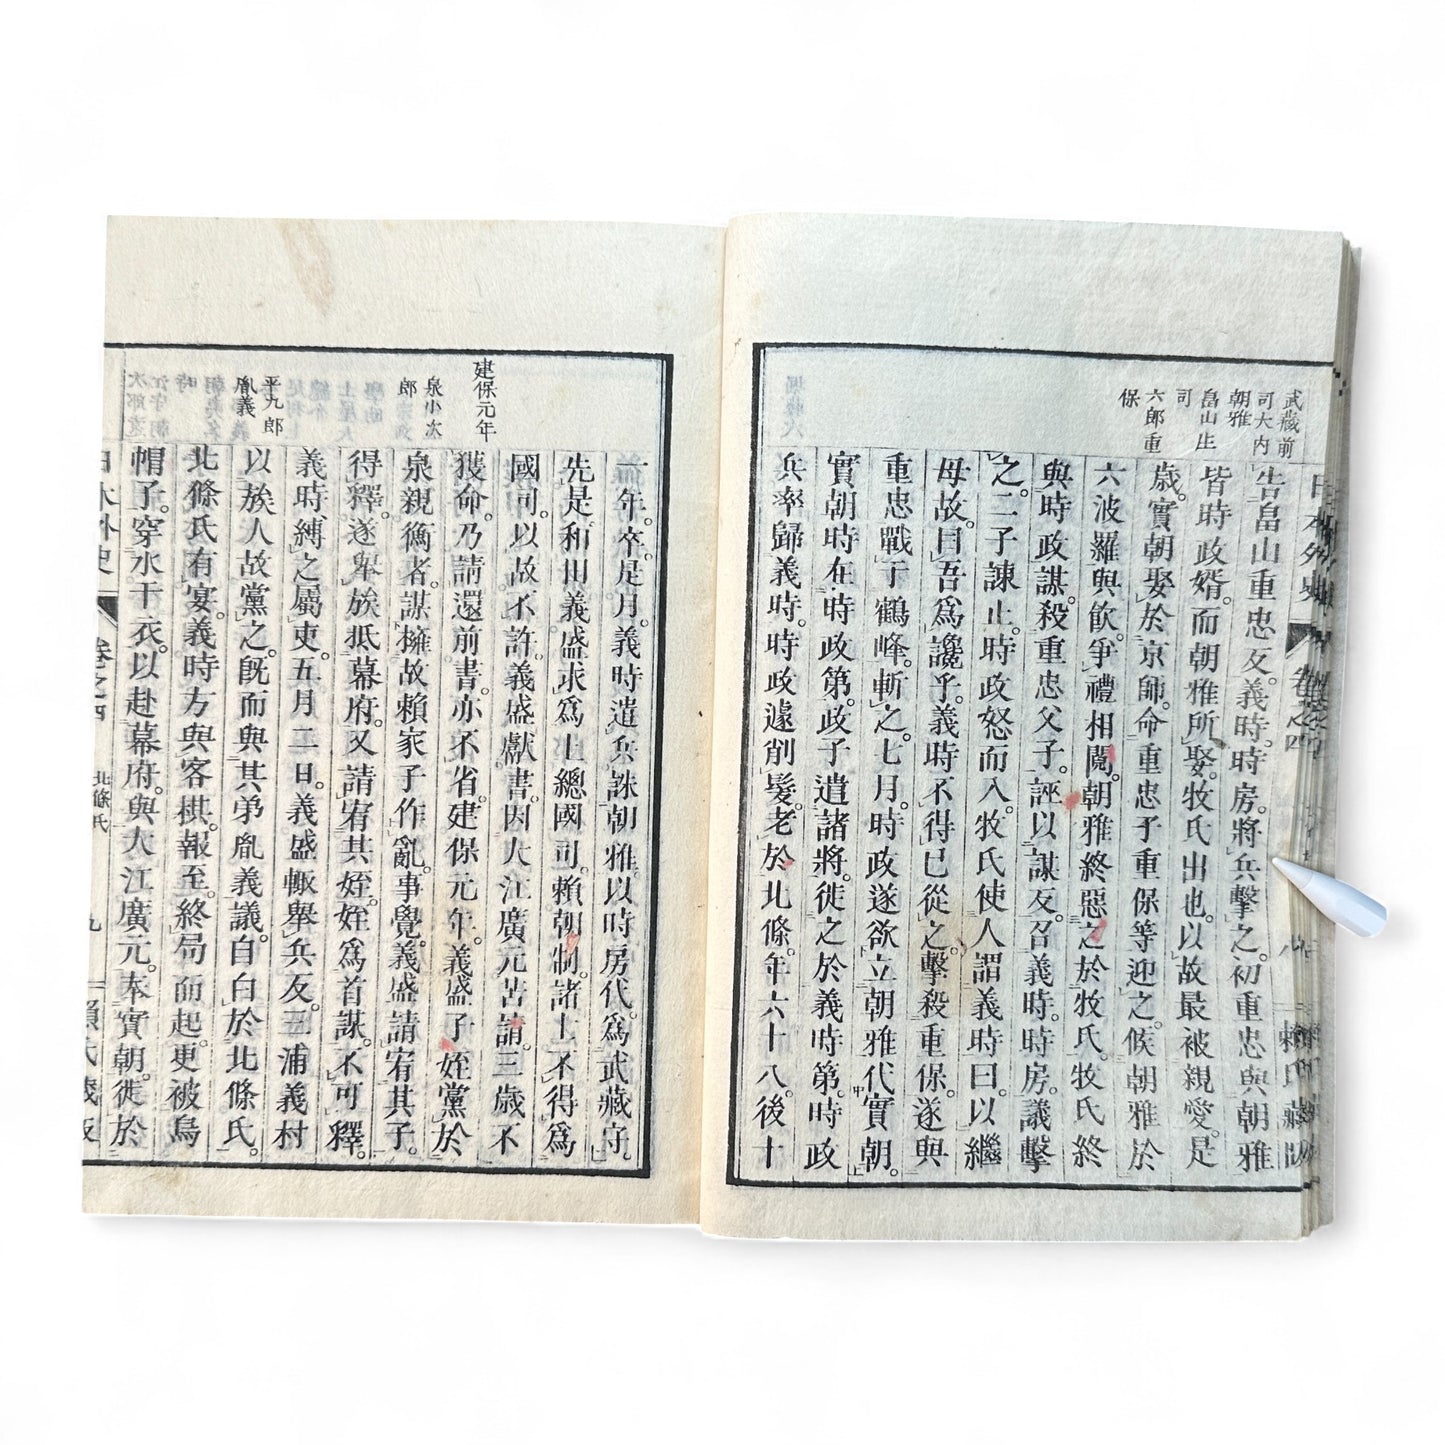 武藏前
司大内
朝雅
畠山庄
司
六郎重
保
告畠山重忠反。義時。時房。將兵擊之。初重忠與朝雅
皆時政婿。而朝雅所娶。牧氏出也。以故最被親愛。是
歲。實朝娶於京師。命重忠子重保等迎之。候朝雅於
六波羅與飲。爭禮相鬩。朝雅終惡之於牧氏。牧氏終
與時政謀。殺重忠父子。誣以謀反。召義時。時房。議擊
之。二子諫止。時政怒而入。牧氏使人謂義時曰。以繼
母故。曰吾爲讒乎。義時不得已從之。擊殺重保。遂與
重忠戰于鶴峰。斬之。七月。時政遂欲立朝雅代實朝。
實朝時在時政第。政子遣諸將。徙之於義時第。時政
兵率歸義時。時政遽削髮。老於北條。年六十八。後十
日本外史
卷之四
八
賴氏藏版
建保元年
泉小次
郎
平九郎
胤義
一年。卒。是月。義時遣兵誅朝雅。以時房代。爲武藏守。
先是。和田義盛求爲上總國司。賴朝制。諸士不得爲
國司。以故不許。義盛獻書。因大江廣元苦請。三歲不
獲命。乃請還前書。亦不省。建保元年。義盛子姪黨於
泉親衡者。謀擁故賴家子作亂。事覺。義盛請宥其子。
得釋。遂舉族抵幕府。又請宥其姪。姪爲首謀。不可釋。
義時縛之屬吏。五月二日。義盛輙舉兵反。三浦義村
以族人故黨之。旣而與其弟胤義議。自白於北條氏。
北條氏有宴。義時方與客棋。報至。終局而起。更被烏
帽子。穿水干衣。以赴幕府。與大江廣元。奉實朝。徙於
日本外史
卷之四
北條氏
九
賴氏藏版